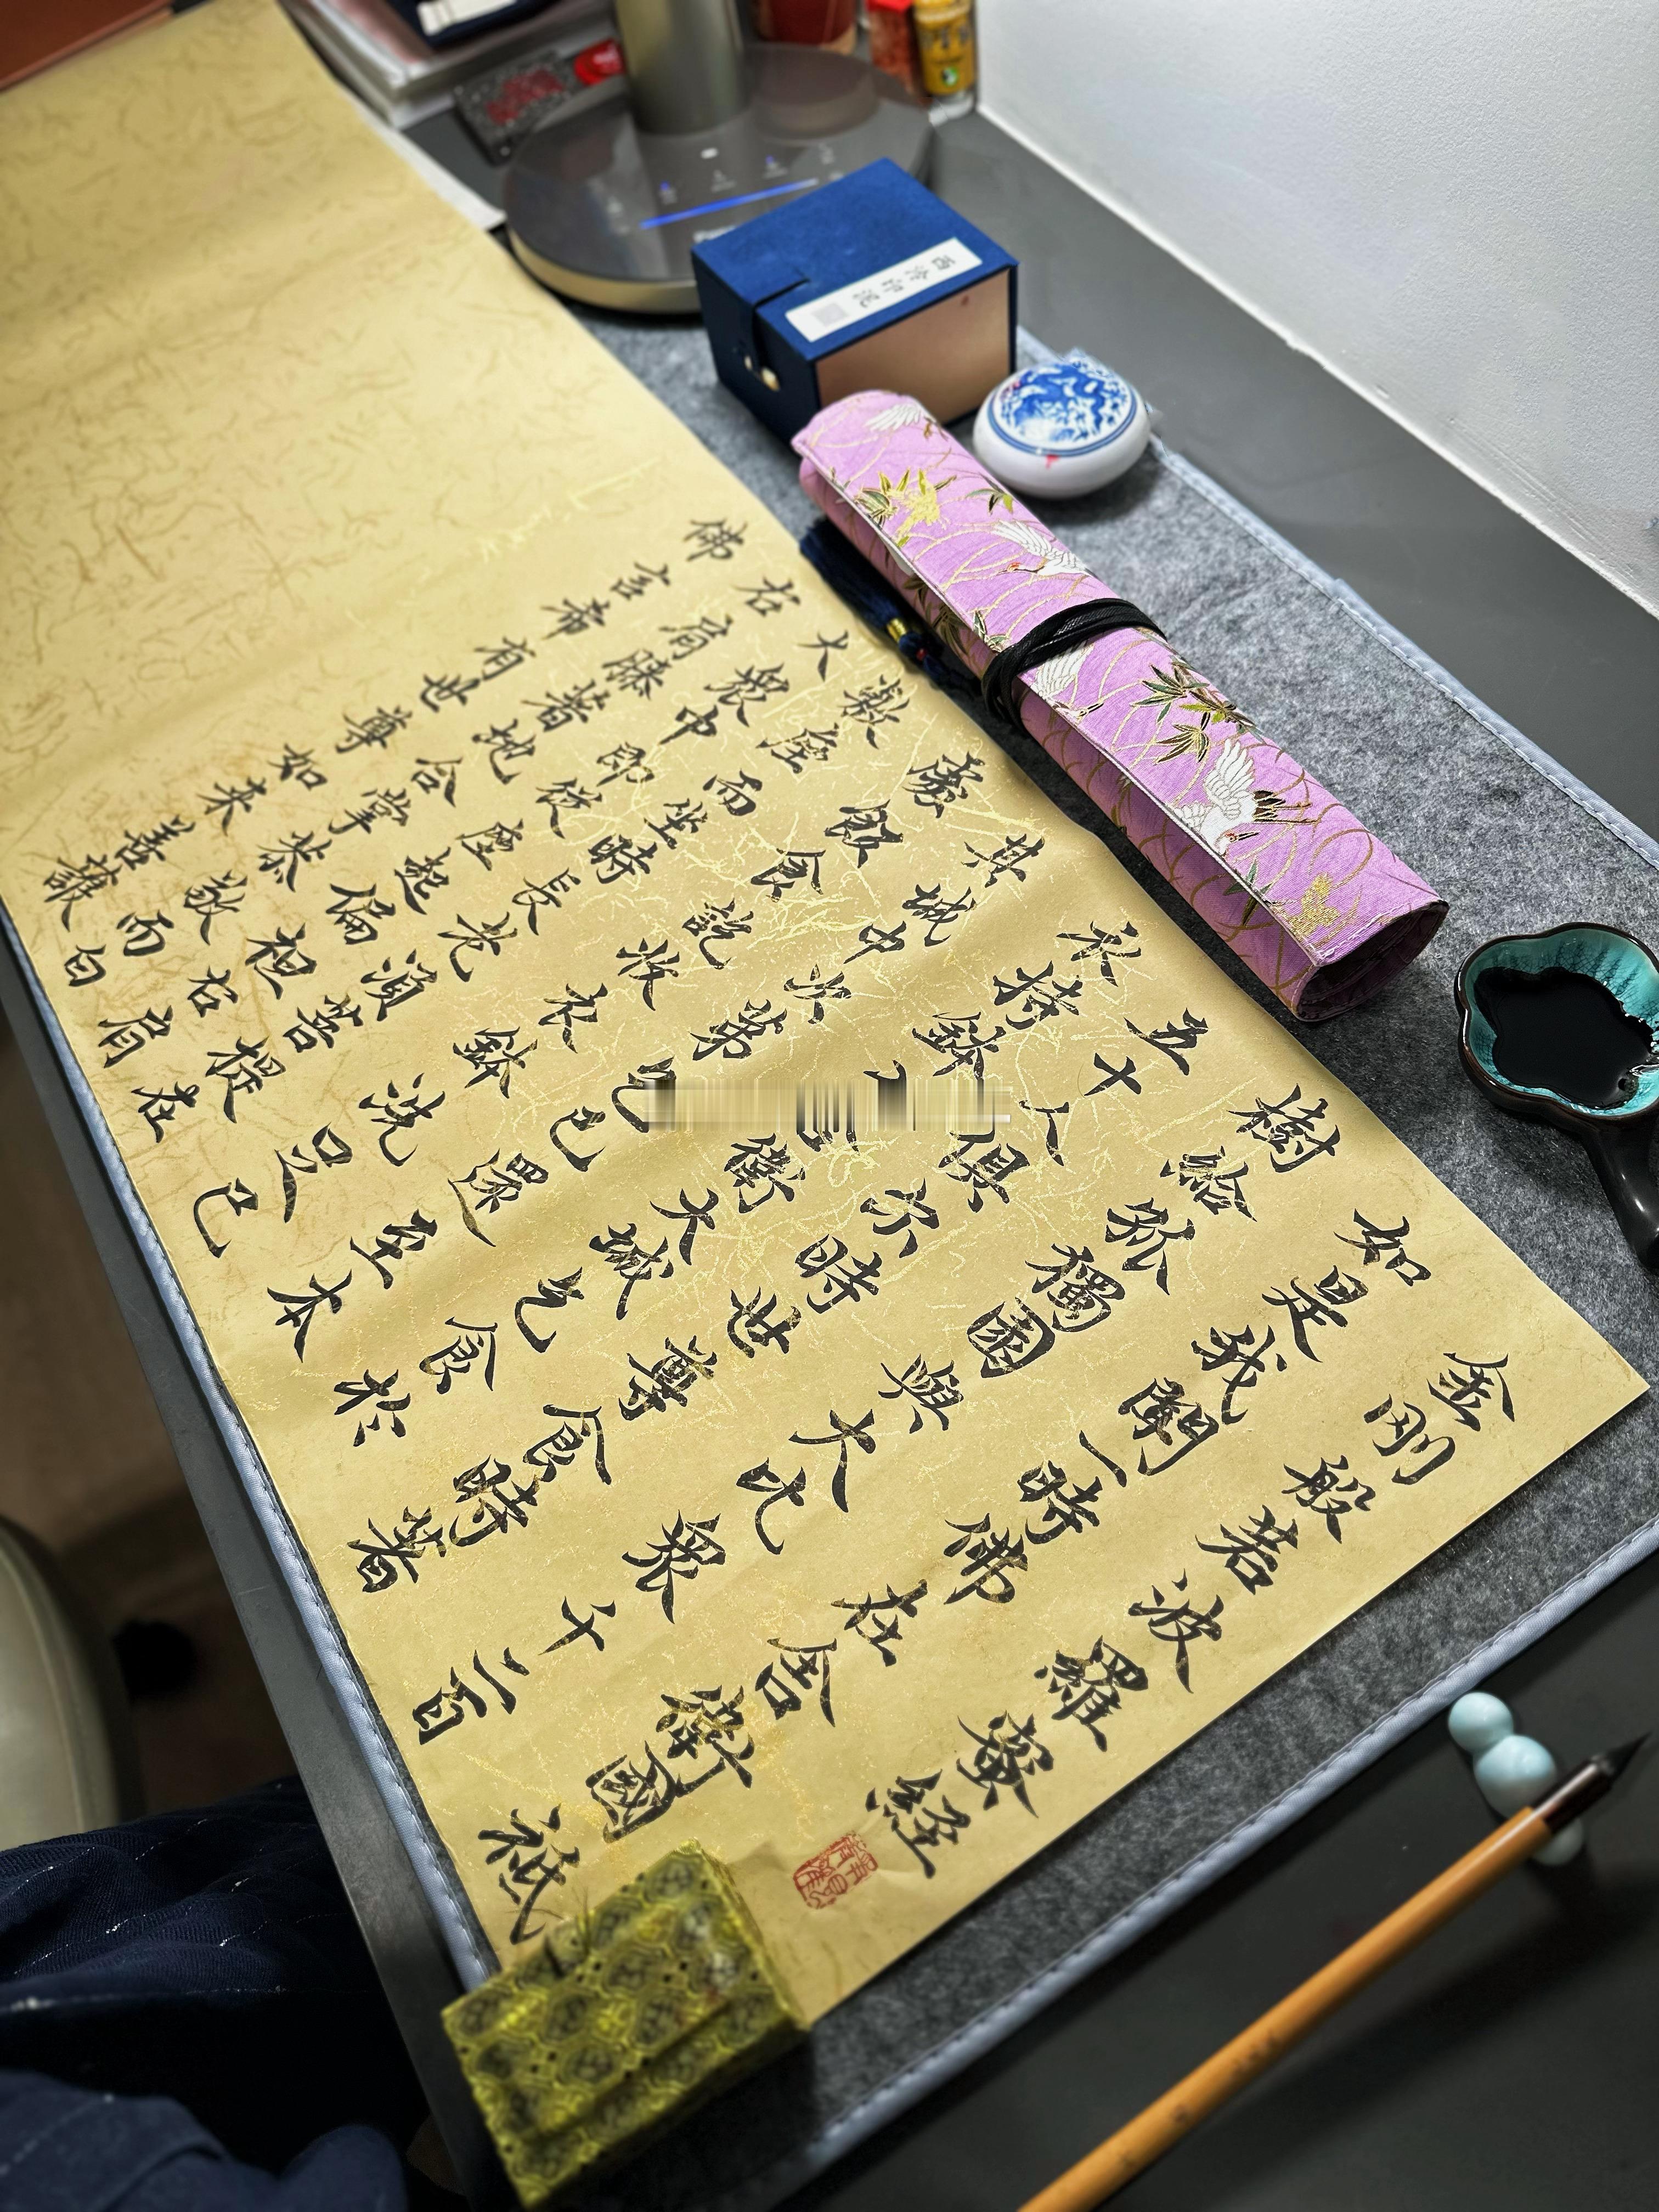 金剛般若波羅蜜經
如是我聞一時佛在舍衛國祇
樹給孤獨園與大比眾千二百
五十人俱尒時世尊食時著
衣持鉢衛大城乞食於
其城中次第乞已還至本
處飯食訖收衣鉢洗足已
敷座而坐時長老須菩提在
大眾中即從座起偏袒右肩
右肩膝著地合掌恭敬而白
佛言希有世尊如來善護
西泠印泥